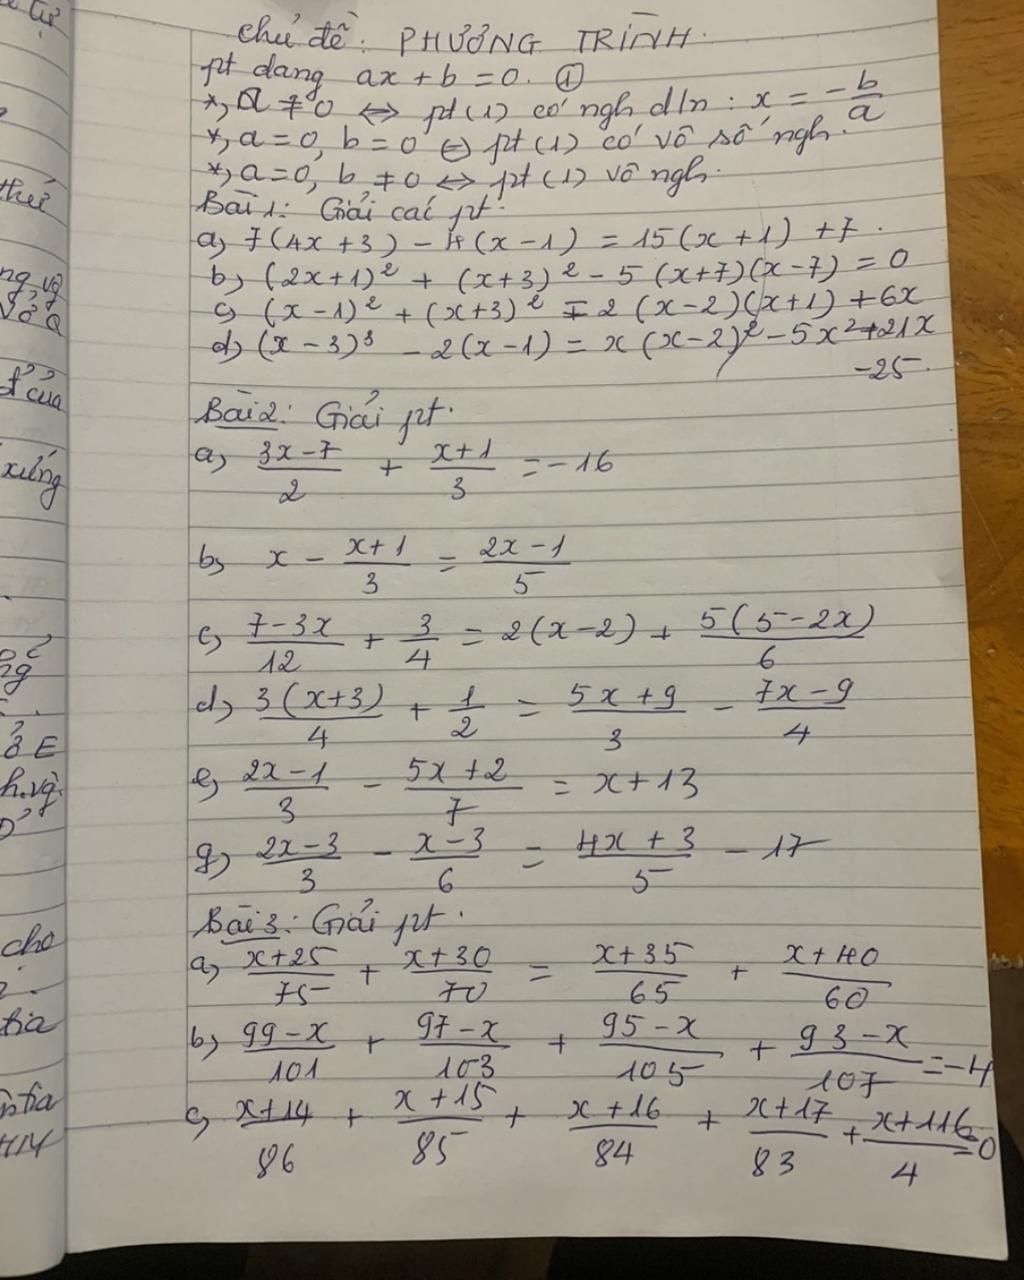 Chủ đề: PHƯƠNG TRÌNH.
pt dạng ax + b = 0. ①
*, a ≠ 0 <=> pt (1) có ngh d1n : x = -b/a
*, a = 0, b = 0 <=> pt (1) có vô số ngh.
*, a = 0, b ≠ 0 <=> pt (1) vô ngh.
Bài 1: Giải các pt:
a, 7(4x+3) - 4(x-1) = 15(x+1) + 7.
b, (2x+1)² + (x+3)² - 5(x+7)(x-7) = 0
c, (x-1)² + (x+3)² = 2(x-2)(x+1) + 6x
d, (x-3)³ - 2(x-1) = x(x-2)² - 5x² + 21x
-25.
Bài 2: Giải pt.
a, (3x-7)/2 + (x+1)/3 = -16
b, x - (x+1)/3 = (2x-1)/5
c, (7-3x)/12 + 3/4 = 2(x-2) + 5(5-2x)/6
d, 3(x+3)/4 + 1/2 = (5x+9)/3 - (7x-9)/4
e, (2x-1)/3 - (5x+2)/7 = x+13
g, (2x-3)/3 - (x-3)/6 = (4x+3)/5 - 17
Bài 3: Giải pt.
a, (x+25)/75 + (x+30)/70 = (x+35)/65 + (x+40)/60
b, (99-x)/101 + (97-x)/103 + (95-x)/105 + (93-x)/107 = -4
c, (x+14)/86 + (x+15)/85 + (x+16)/84 + (x+17)/83 + (x+116)/4 = 0
thứ
ng vg
đ của
xứng
ở E
h.vg.
cho
tia